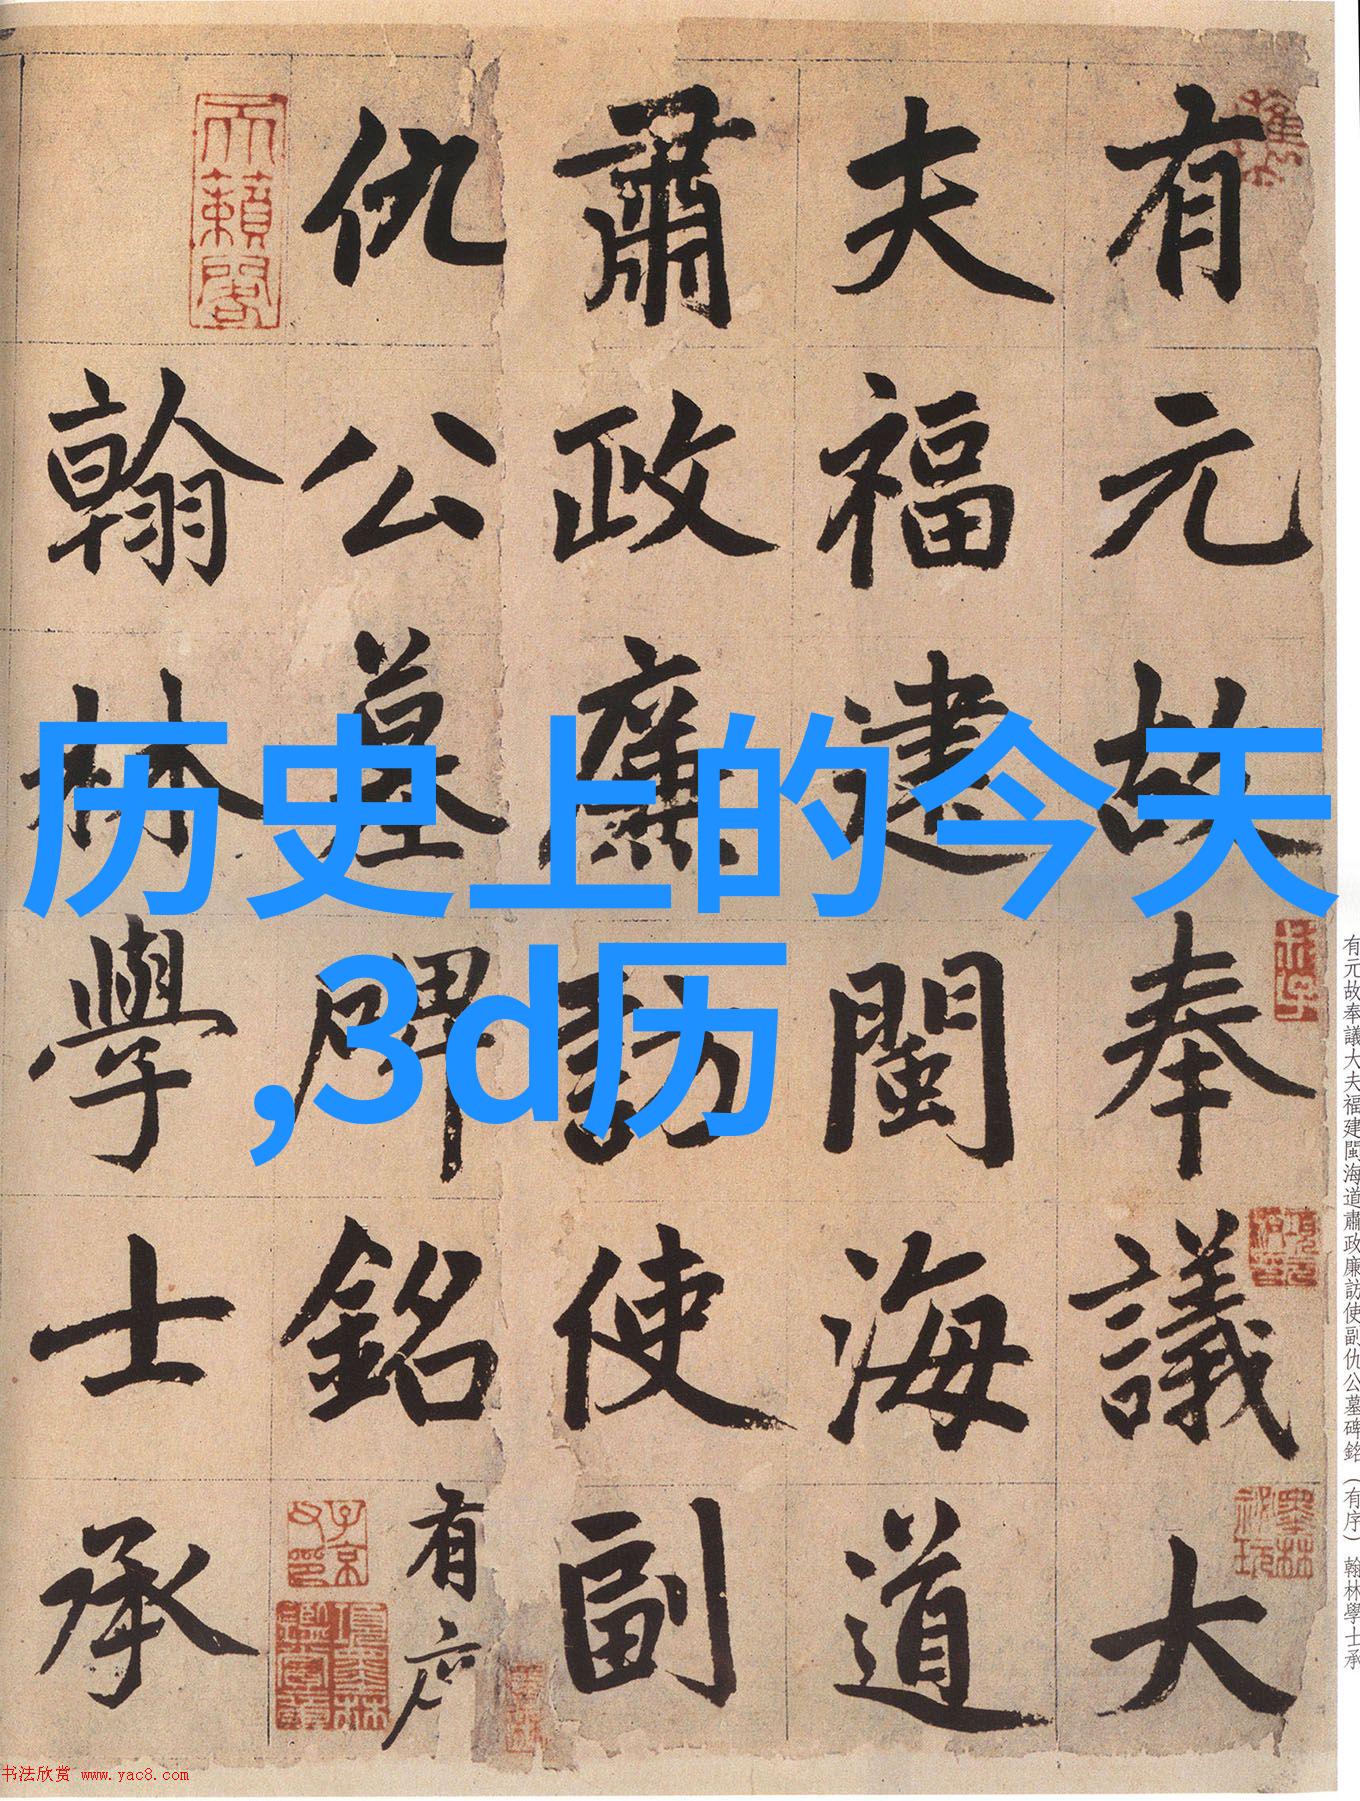 有元故奉議大
夫福建閩海道
肅政廉訪使副
仇公墓碑銘有序
翰林學士承
历史上的今天
,3d历
天籟閣
子京父印
項元汴印
墨林祕玩
有元故奉議大夫福建閩海道肅政廉訪使副仇公墓碑銘（有序）翰林學士承
书法欣赏 www.yac8.com